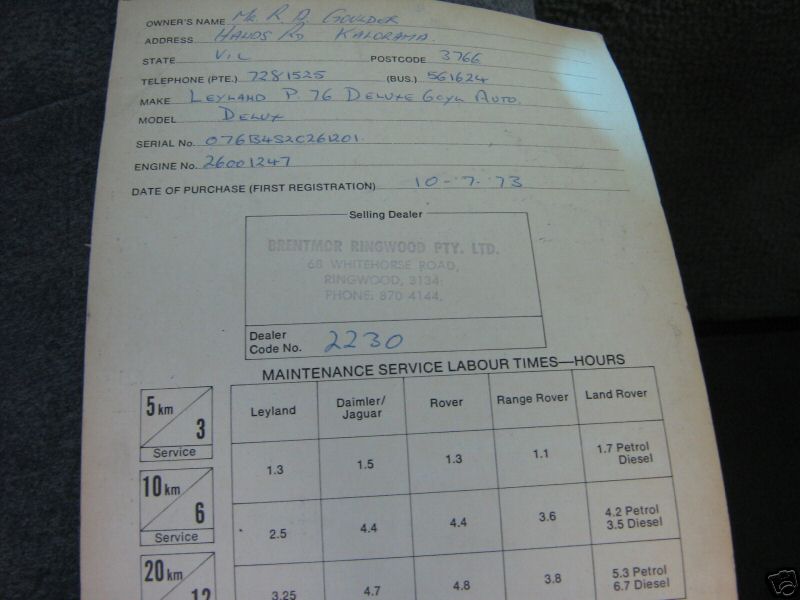 OWNER'S NAME Mr R. D. GOULDER
ADDRESS HANDS RD KALORAMA.
STATE VIC POSTCODE 3766
TELEPHONE (PTE.) 7281525 (BUS.) 561624
MAKE LEYLAND P. 76 DELUXE 6CYL AUTO.
MODEL DELUX
SERIAL No. 076B4S2C261201
ENGINE No. 26001247
DATE OF PURCHASE (FIRST REGISTRATION) 10-7-73
Selling Dealer
BRENTMOR RINGWOOD PTY. LTD.
68 WHITEHORSE ROAD,
RINGWOOD, 3134.
PHONE: 870 4144.
Dealer
Code No. 2230
MAINTENANCE SERVICE LABOUR TIMES—HOURS
Leyland Daimler/Jaguar Rover Range Rover Land Rover
5 km 3 Service 1.3 1.5 1.3 1.1 1.7 Petrol Diesel
10 km 6 Service 2.5 4.4 4.4 3.6 4.2 Petrol 3.5 Diesel
20 km 12 3.25 4.7 4.8 3.8 5.3 Petrol 6.7 Diesel